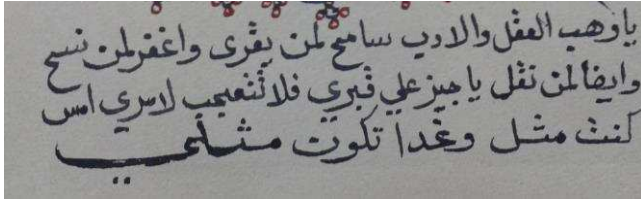 ياوهب العقل والادب سامح لمن يقرى واغفر لمن نسخ
وايضا لمن نقل ياجيز علي قبري فلا تتعجب لامري امس
كنت مثل وغدا تكون مثلي